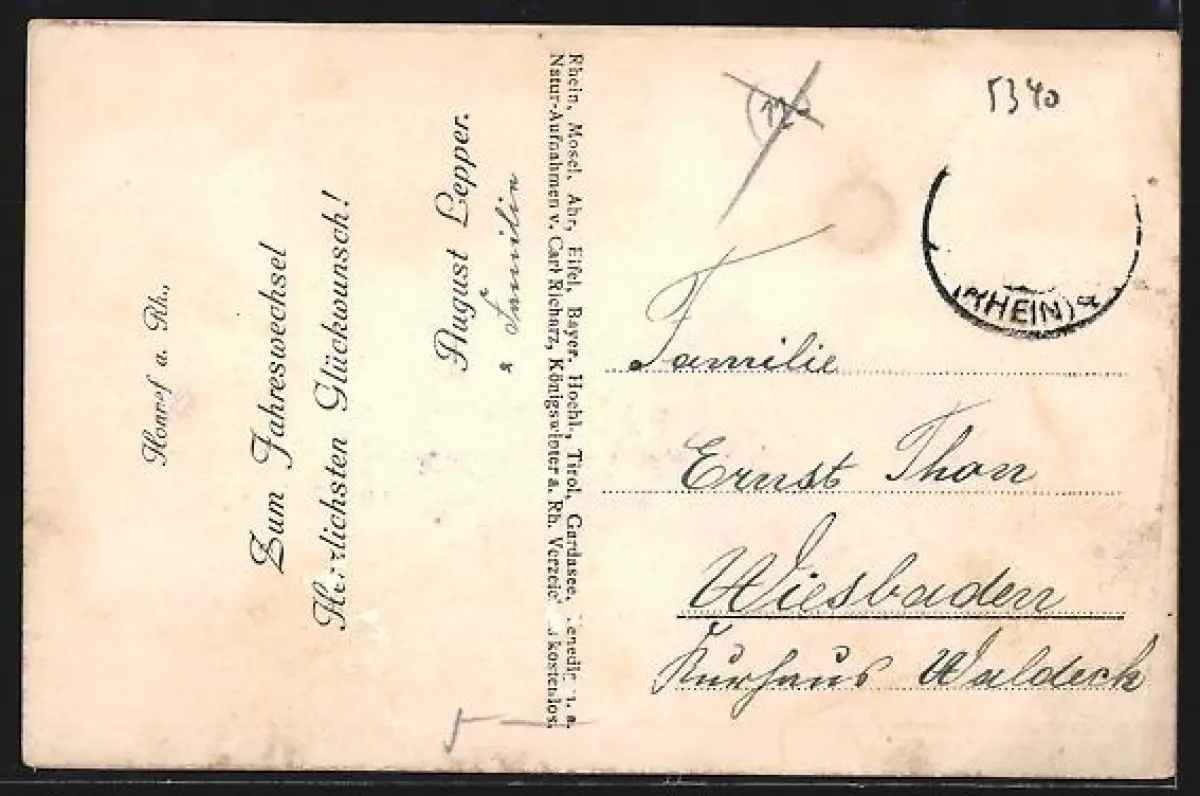 Honnef a. Rh.,
Zum Jahreswechsel
Herzlichsten Glückwunsch!
August Lepper.
& Familie
Rhein, Mosel, Ahr, Eifel, Bayer. Hochl., Tirol, Gardasee, Venedig u. a.
Natur-Aufnahmen v. Carl Richarz, Königswinter a. Rh. Verzeic kostenlos.
5340
(RHEIN) a
Familie
Ernst Thon
Wiesbaden
Kurhaus Waldeck